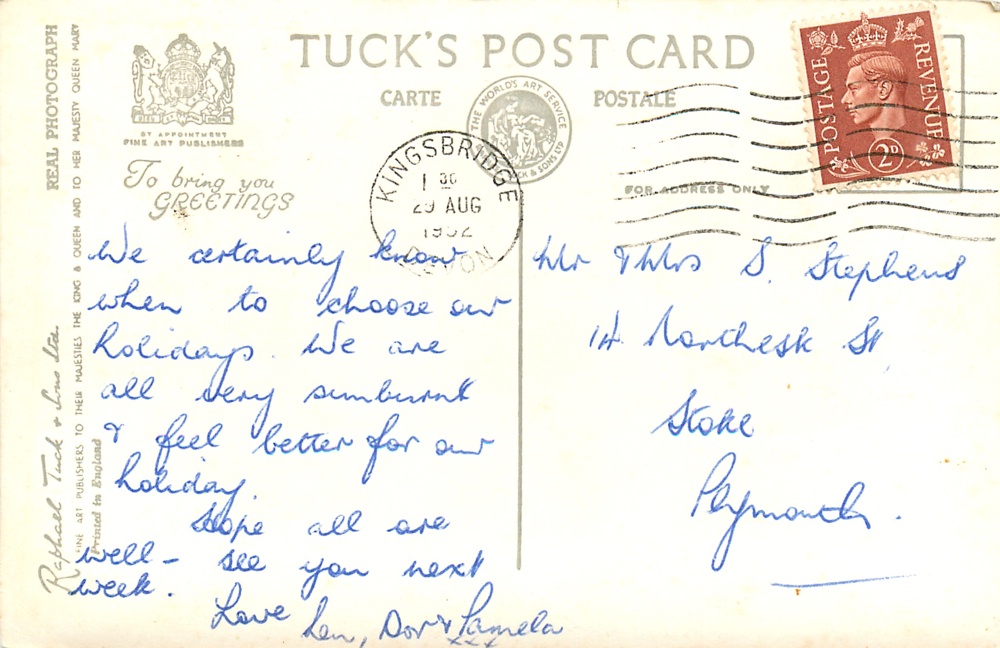 TUCK'S POST CARD
CARTE POSTALE
BY APPOINTMENT
FINE ART PUBLISHERS
To bring you
GREETINGS
REAL PHOTOGRAPH
FINE ART PUBLISHERS TO THEIR MAJESTIES THE KING & QUEEN AND TO HER MAJESTY QUEEN MARY
Raphael Tuck & Sons Ltd.
Printed in England
THE WORLD'S ART SERVICE
TUCK & SONS LTD
KINGSBRIDGE
1 30
29 AUG
1952
DEVON
POSTAGE REVENUE
2D
FOR ADDRESS ONLY
We certainly know
when to choose our
holidays. We are
all very sunburnt
& feel better for our
holiday.
Hope all are
well - see you next
week.
Love
Len, Dor & Pamela
xxx
Mr & Mrs S. Stephens
14 Northesk St
Stoke
Plymouth.